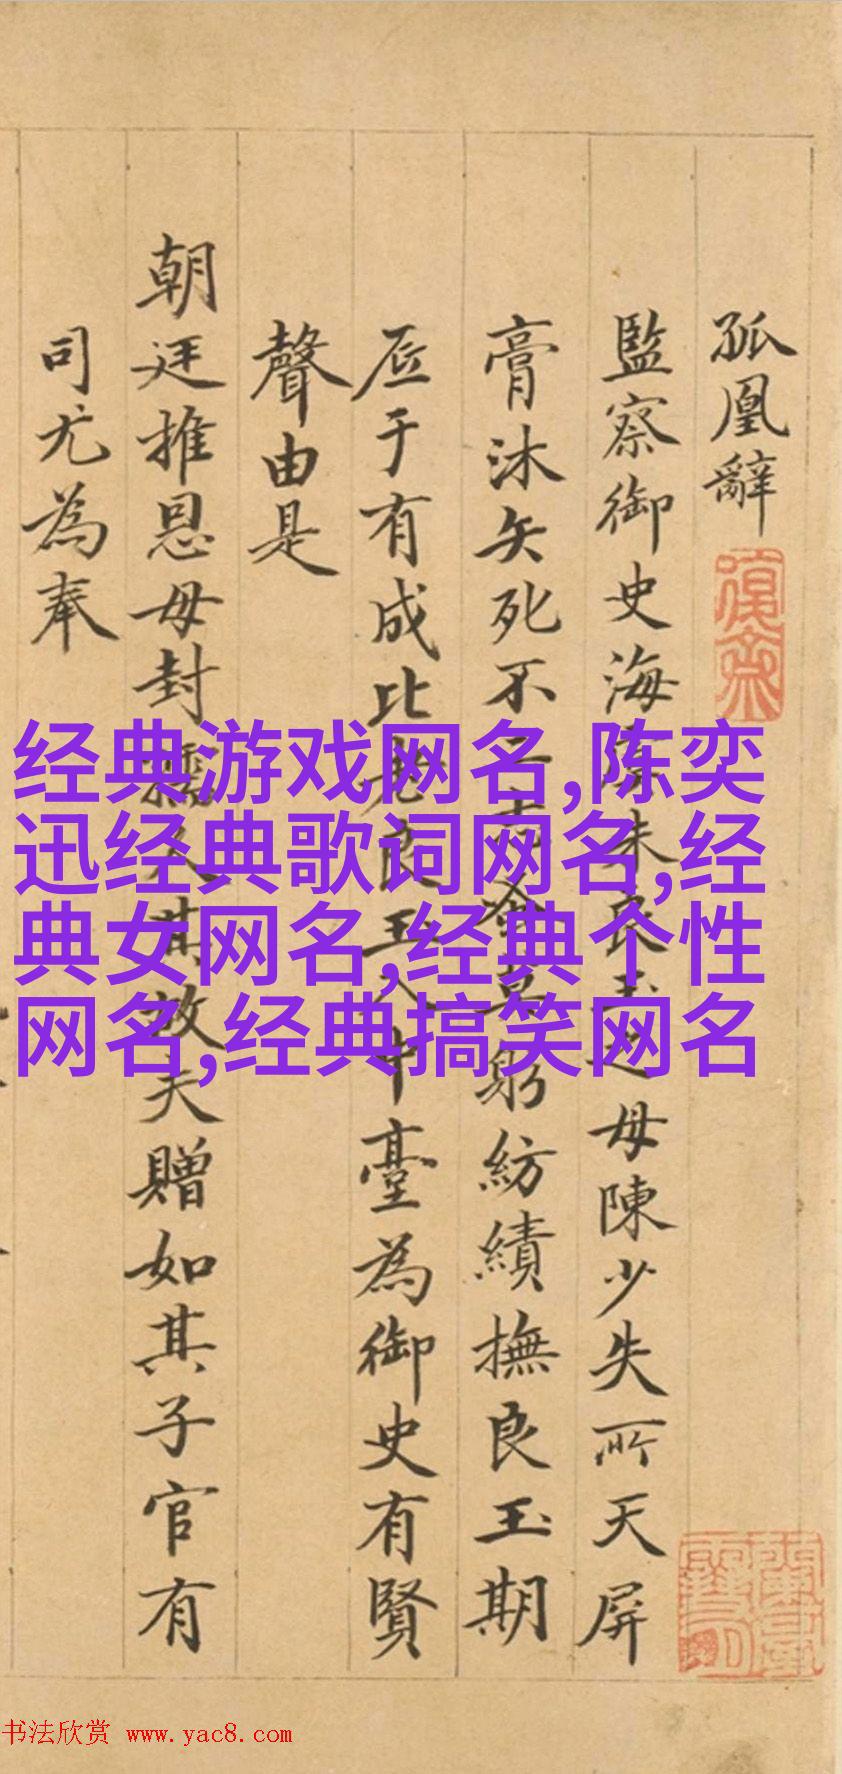 孤凰辭
監察御史海虞朱良玉之母陳少失所天屏
膏沐矢死不二志躬紡績撫良玉期
底于有成比老良玉入中臺為御史有賢
聲由是
朝廷推恩母封孺人其故夫贈如其子官有
司尤為奉
经典游戏网名,陈奕
迅经典歌词网名,经
典女网名,经典个性
网名,经典搞笑网名
书法欣赏 www.yac8.com